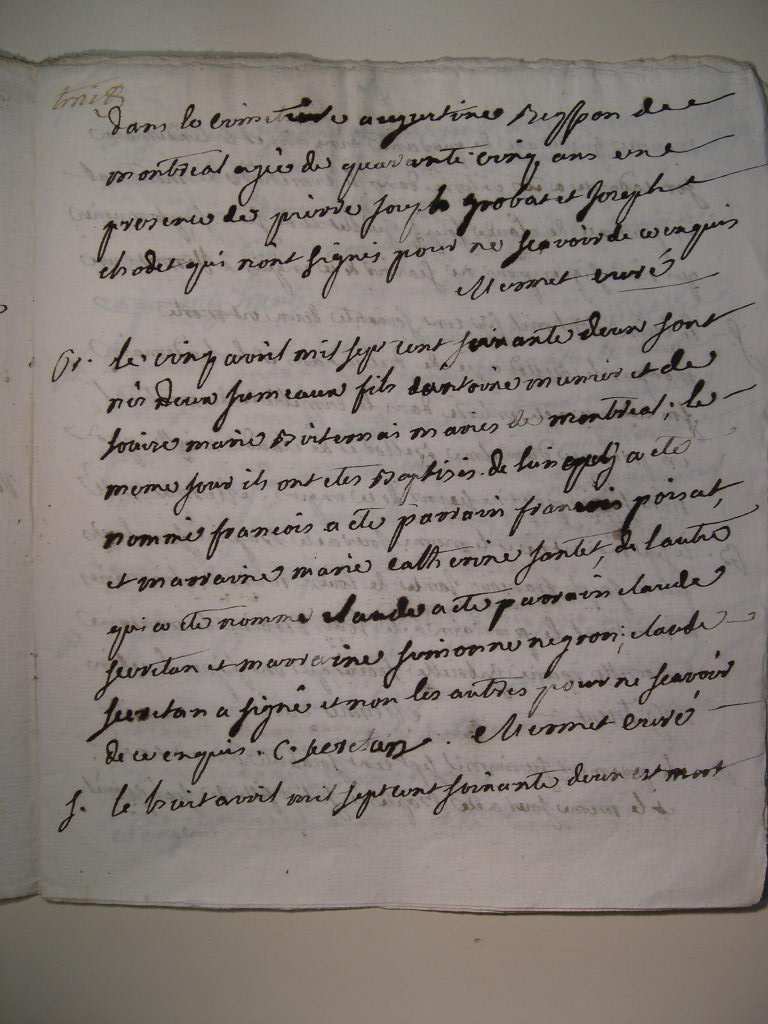 dans le cimetiere augustine Reysson de
montreal agée de quarante cinq ans en
presence de pierre joseph grobat et joseph
chodet qui n'ont signes pour ne sçavoir de ce enquis
Mermet curé
le cinq avril mil sept cent soixante deux sont
nés deux jumeaux fils d'antoine munier et de
marie mariés de montreal; le
meme jour ils ont etes Baptisés. de l'un a ete
nommé francois a ete parrain francois poisat,
et marraine marie catherine santet, de l'autre
qui a ete nomme claude a ete parrain claude
secretan et marraine simonne negron; claude
secretan a signé et non les autres pour ne sçavoir
de ce enquis. C. secretan. Mermet curé
f. le huit avril mil sept cent soixante deux est mort